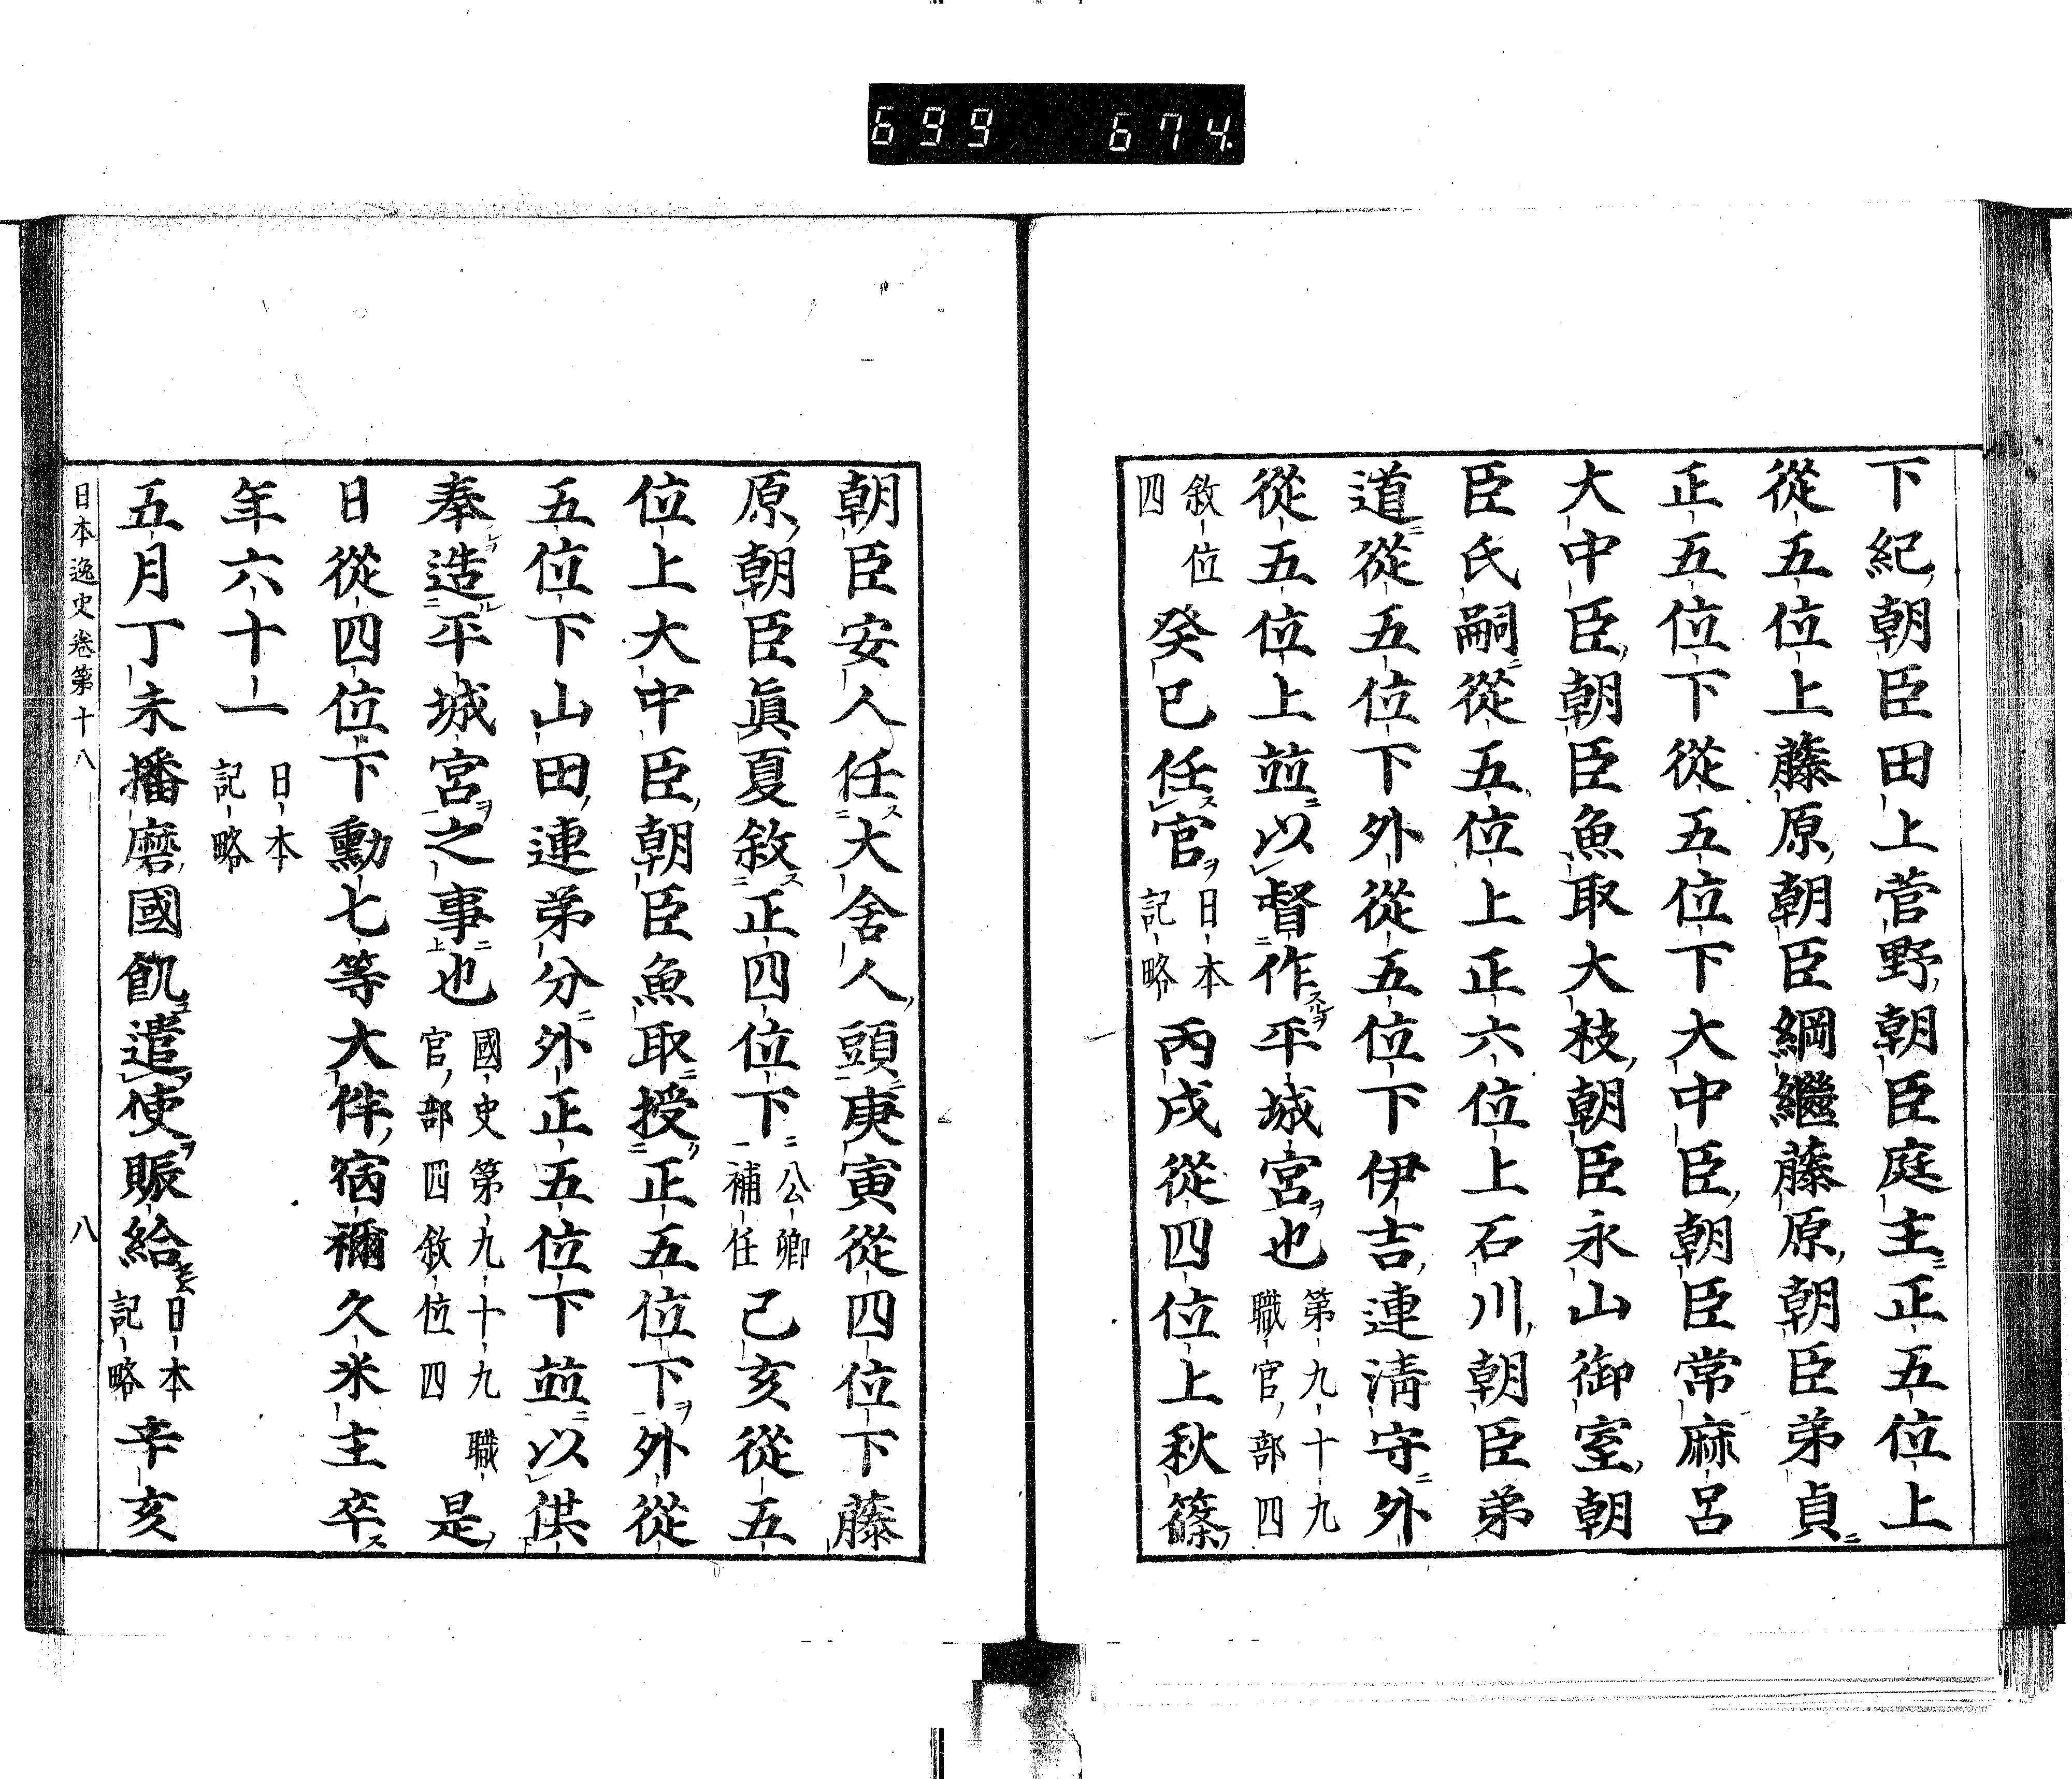 699 674.
下紀朝臣田上菅野朝臣庭主正五位上
從五位上藤原朝臣綱繼藤原朝臣弟貞
正五位下從五位下大中臣朝臣常麻呂
大中臣朝臣魚取大枝朝臣永山御室朝
臣氏嗣從五位上正六位上石川朝臣弟
道從五位下外從五位下伊吉連淸守外
從五位上並以督作平城宮也 第九十九職官部四
敘位四 癸巳任官 日本記略 丙戌從四位上秋篠
朝臣安人任大舍人頭庚寅從四位下藤
原朝臣眞夏敘正四位下 公卿補任 己亥從五
位上大中臣朝臣魚取授正五位下外從
五位下山田連弟分外正五位下並以供
奉造平城宮之事也 國史第九十九職官部四敘位四 是
日從四位下勳七等大伴宿禰久米主卒
年六十一 日本記略
五月丁未播磨國飢遣使賑給 日本記略 辛亥
日本逸史卷第十八 八